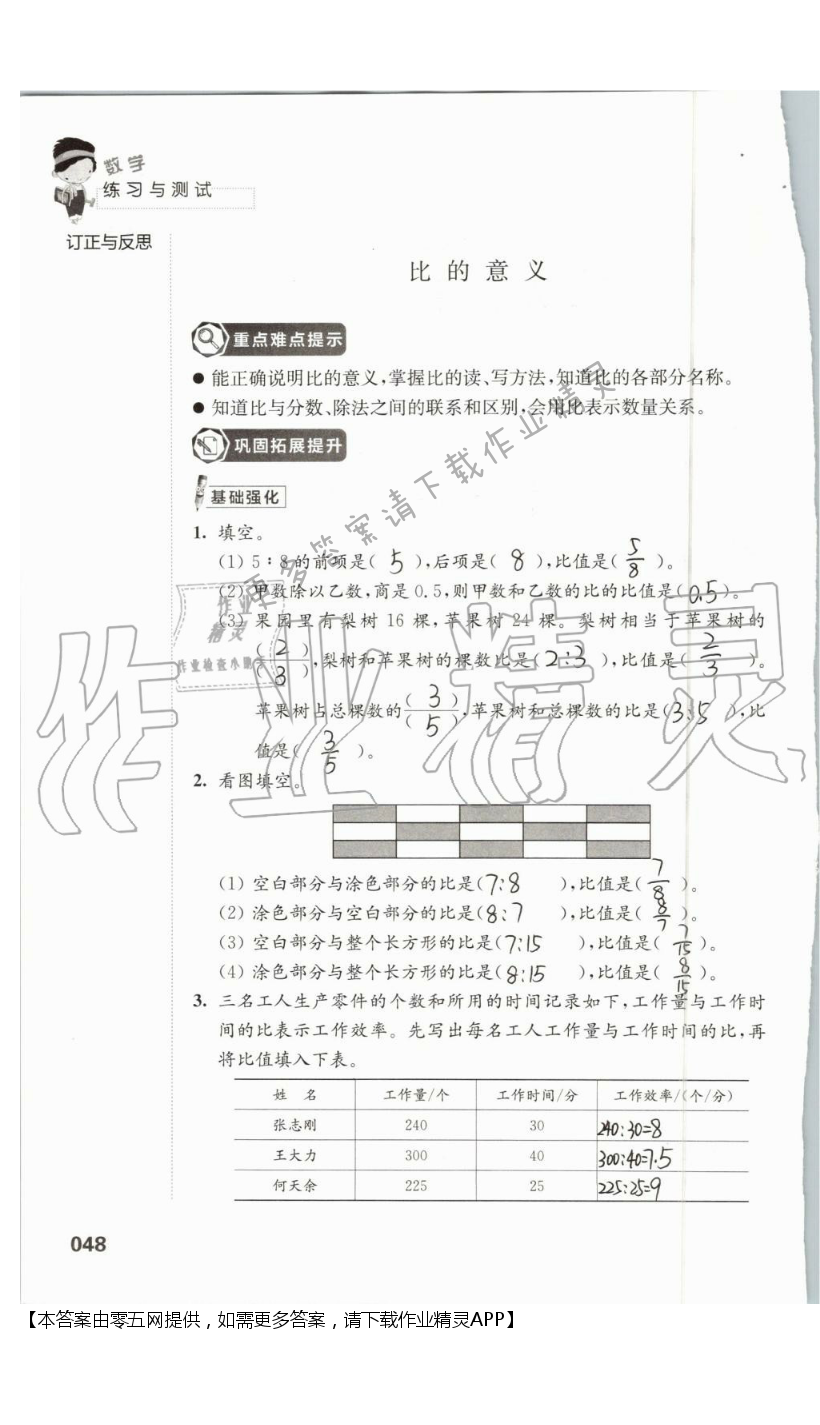 数学
练习与测试
订正与反思
比的意义
重点难点提示
● 能正确说明比的意义,掌握比的读、写方法,知道比的各部分名称。
● 知道比与分数、除法之间的联系和区别,会用比表示数量关系。
巩固拓展提升
基础强化
1. 填空。
(1) 5∶8的前项是( 5 ),后项是( 8 ),比值是( 5/8 )。
(2) 甲数除以乙数,商是0.5,则甲数和乙数的比的比值是(0.5)。
(3) 果园里有梨树16棵,苹果树24棵。梨树相当于苹果树的
( 2 )/( 3 ),梨树和苹果树的棵数比是(2:3),比值是( 2/3 )。
苹果树占总棵数的( 3 )/( 5 ),苹果树和总棵数的比是(3:5 ),比
值是( 3/5 )。
2. 看图填空。
(1) 空白部分与涂色部分的比是(7:8 ),比值是( 7/8 )。
(2) 涂色部分与空白部分的比是(8:7 ),比值是( 8/7 )。
(3) 空白部分与整个长方形的比是(7:15 ),比值是( 7/15 )。
(4) 涂色部分与整个长方形的比是(8:15 ),比值是( 8/15 )。
3. 三名工人生产零件的个数和所用的时间记录如下,工作量与工作时
间的比表示工作效率。先写出每名工人工作量与工作时间的比,再
将比值填入下表。
姓 名 工作量/个 工作时间/分 工作效率/(个/分)
张志刚 240 30 240:30=8
王大力 300 40 300:40=7.5
何天余 225 25 225:25=9
048
更多答案请下载作业精灵
作业精灵
作业检查小助手
作业精灵
【本答案由零五网提供，如需更多答案，请下载作业精灵APP】